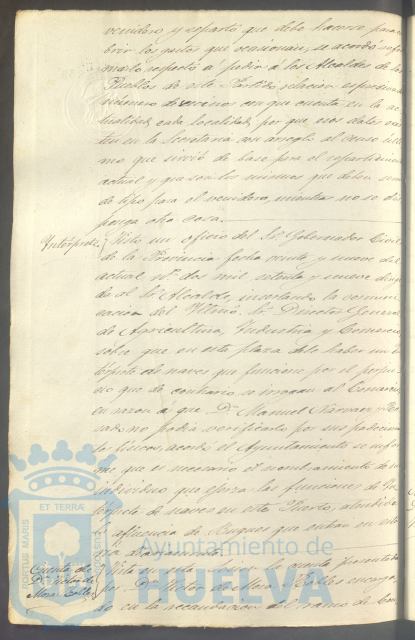 venidero, y reparto que debe hacerse para cu-
brir los gastos que ocasionan, se acordó infor-
marlo respecto a pedir á los Alcaldes de los
Pueblos de este Partido relacion espresiva
número de vecinos con que cuenta en la ac-
tualidad cada localidad, por que esos datos exis-
ten en la Secretaria con arreglo al censo ulti-
mo que sirvió de base para el repartimiento
actual y que son los mismos que deben servir
de tipo para el venidero, mientras no se dis-
ponga otra cosa.
Intérprete.} Visto un oficio del Sr. Gobernador Civil
de la Provincia fecha veinte y nueve del
actual nº. dos mil setenta y nueve dirigi-
da al Sr. Alcalde, insertando la comuni-
cacion del Iltmo. Sr. Director General
de Agricultura, Industria y Comercio
sobre que en esta plaza debe haber un In-
térprete de naves que funcione por el perjui-
cio que de contrario se irrogan al Comercio
en razon á que D. Manuel Narvaez
no podia verificarlo por sus padecimien-
tos fisicos, acordó el Ayuntamiento se infor-
me que es necesario el nombramiento de un
individuo que ejerza las funciones de In-
terprete de naves en este Puerto, atendida
la afluencia de Buques que entran en este
ria
Cuenta de
D. Victor de
Mora Robles} Vista en
la cuenta presentada
por D. Victor de Mora Robles encarga-
do en la recaudacion del ramo de Con-
PORTUS MARIS
ET TERRÆ
Ayuntamiento de
HUELVA